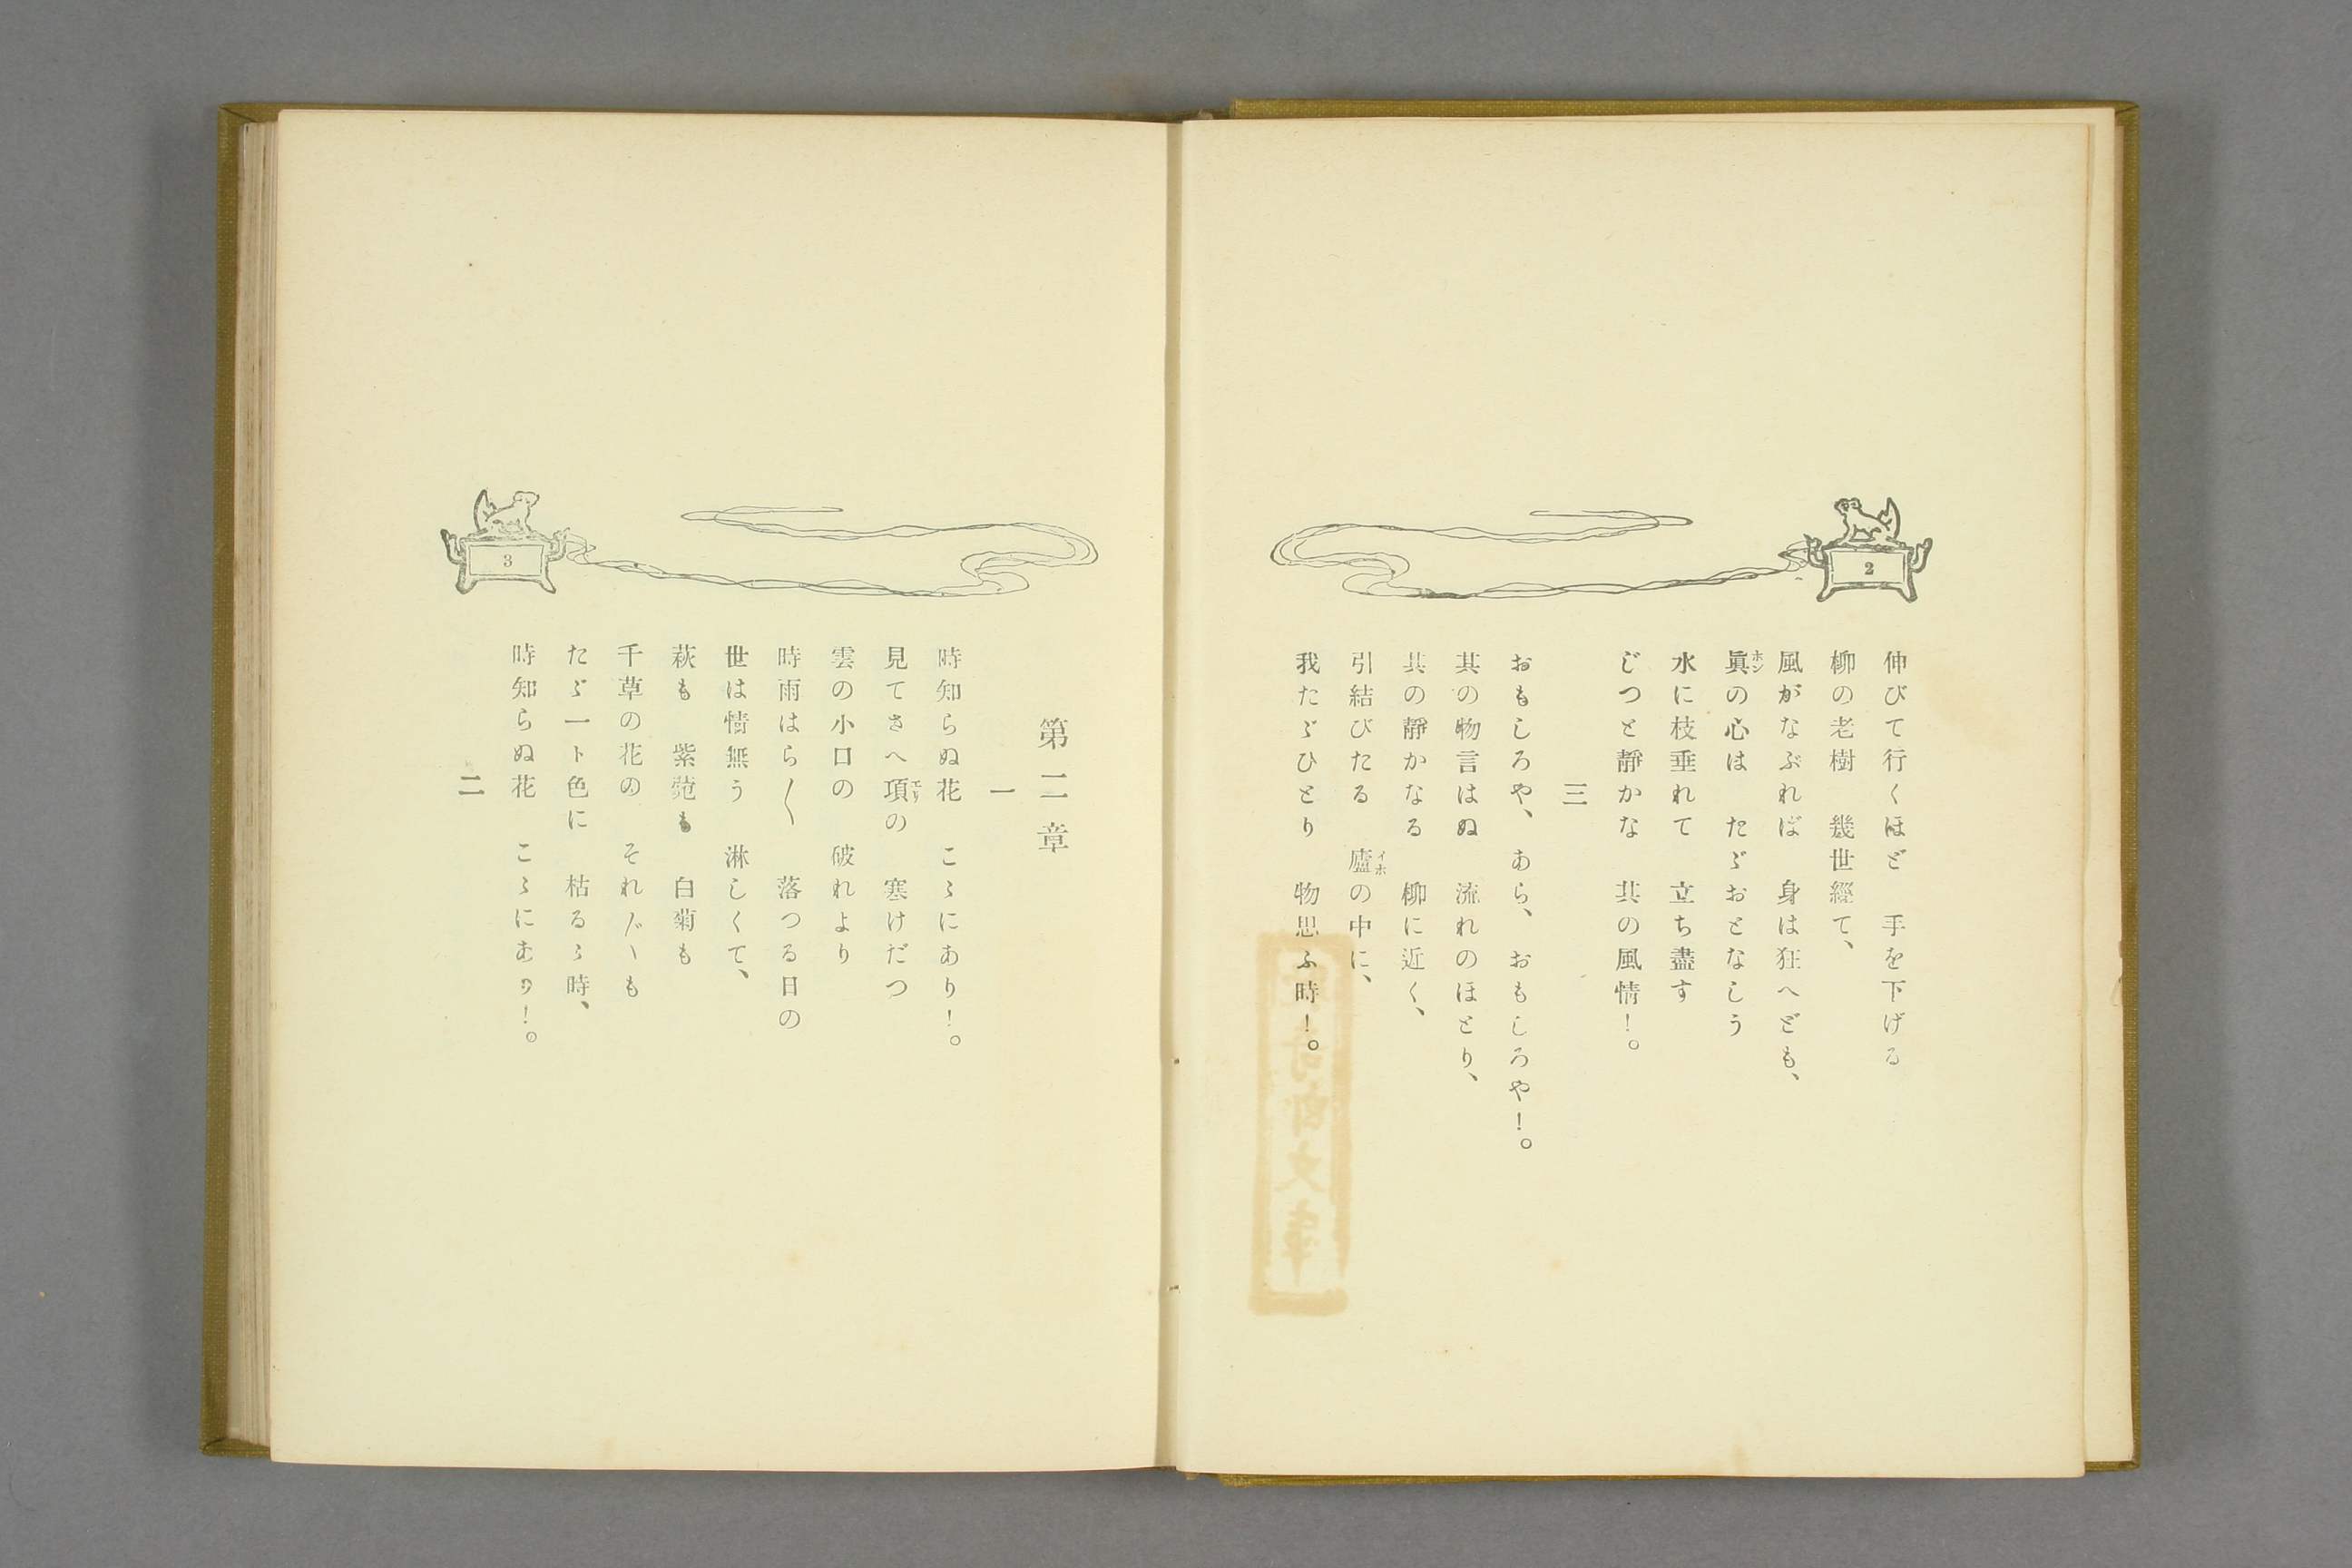 2
伸びて行くほど　手を下げる
柳の老樹　幾世經て、
風がなぶれば　身は狂へども、
眞の心は　たゞおとなしう
ホン
水に枝垂れて　立ち盡す
じつと靜かな　其の風情！。
三
おもしろや、あら、おもしろや！。
其の物言はぬ　流れのほとり、
其の靜かなる　柳に近く、
引結びたる　廬の中に、
イホ
我たゞひとり　物思ふ時！。
3
第二章
一
時知らぬ花　こゝにあり！。
見てさへ項の　寒けだつ
エリ
雲の小口の　破れより
時雨はら〳〵　落つる日の
世は情無う　淋しくて、
萩も　紫菀も　白菊も
千草の花の　それ〴〵も
たゞ一ト色に　枯るゝ時、
時知らぬ花　こゝにあり！。
二